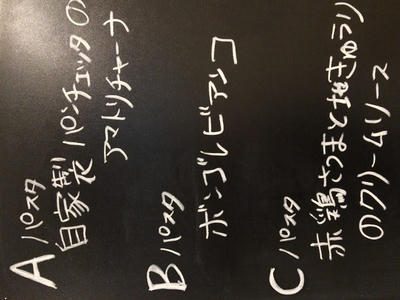 A パスタ
自家製 パンチェッタの
アマトリチャーナ
B パスタ
ボンゴレビアンコ
C パスタ
赤鶏さつまときゅうり
のクリームソース